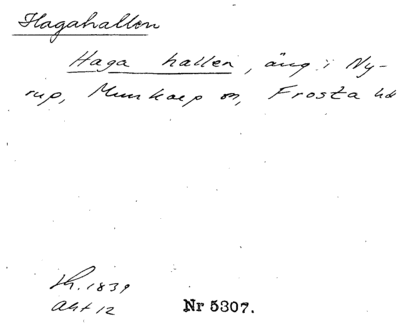 Hagahallen
Haga hallen, äng i Ny-
rup, Munkarp sn, Frosta hd
Sh. 1839
Akt 12
Nr 5307.